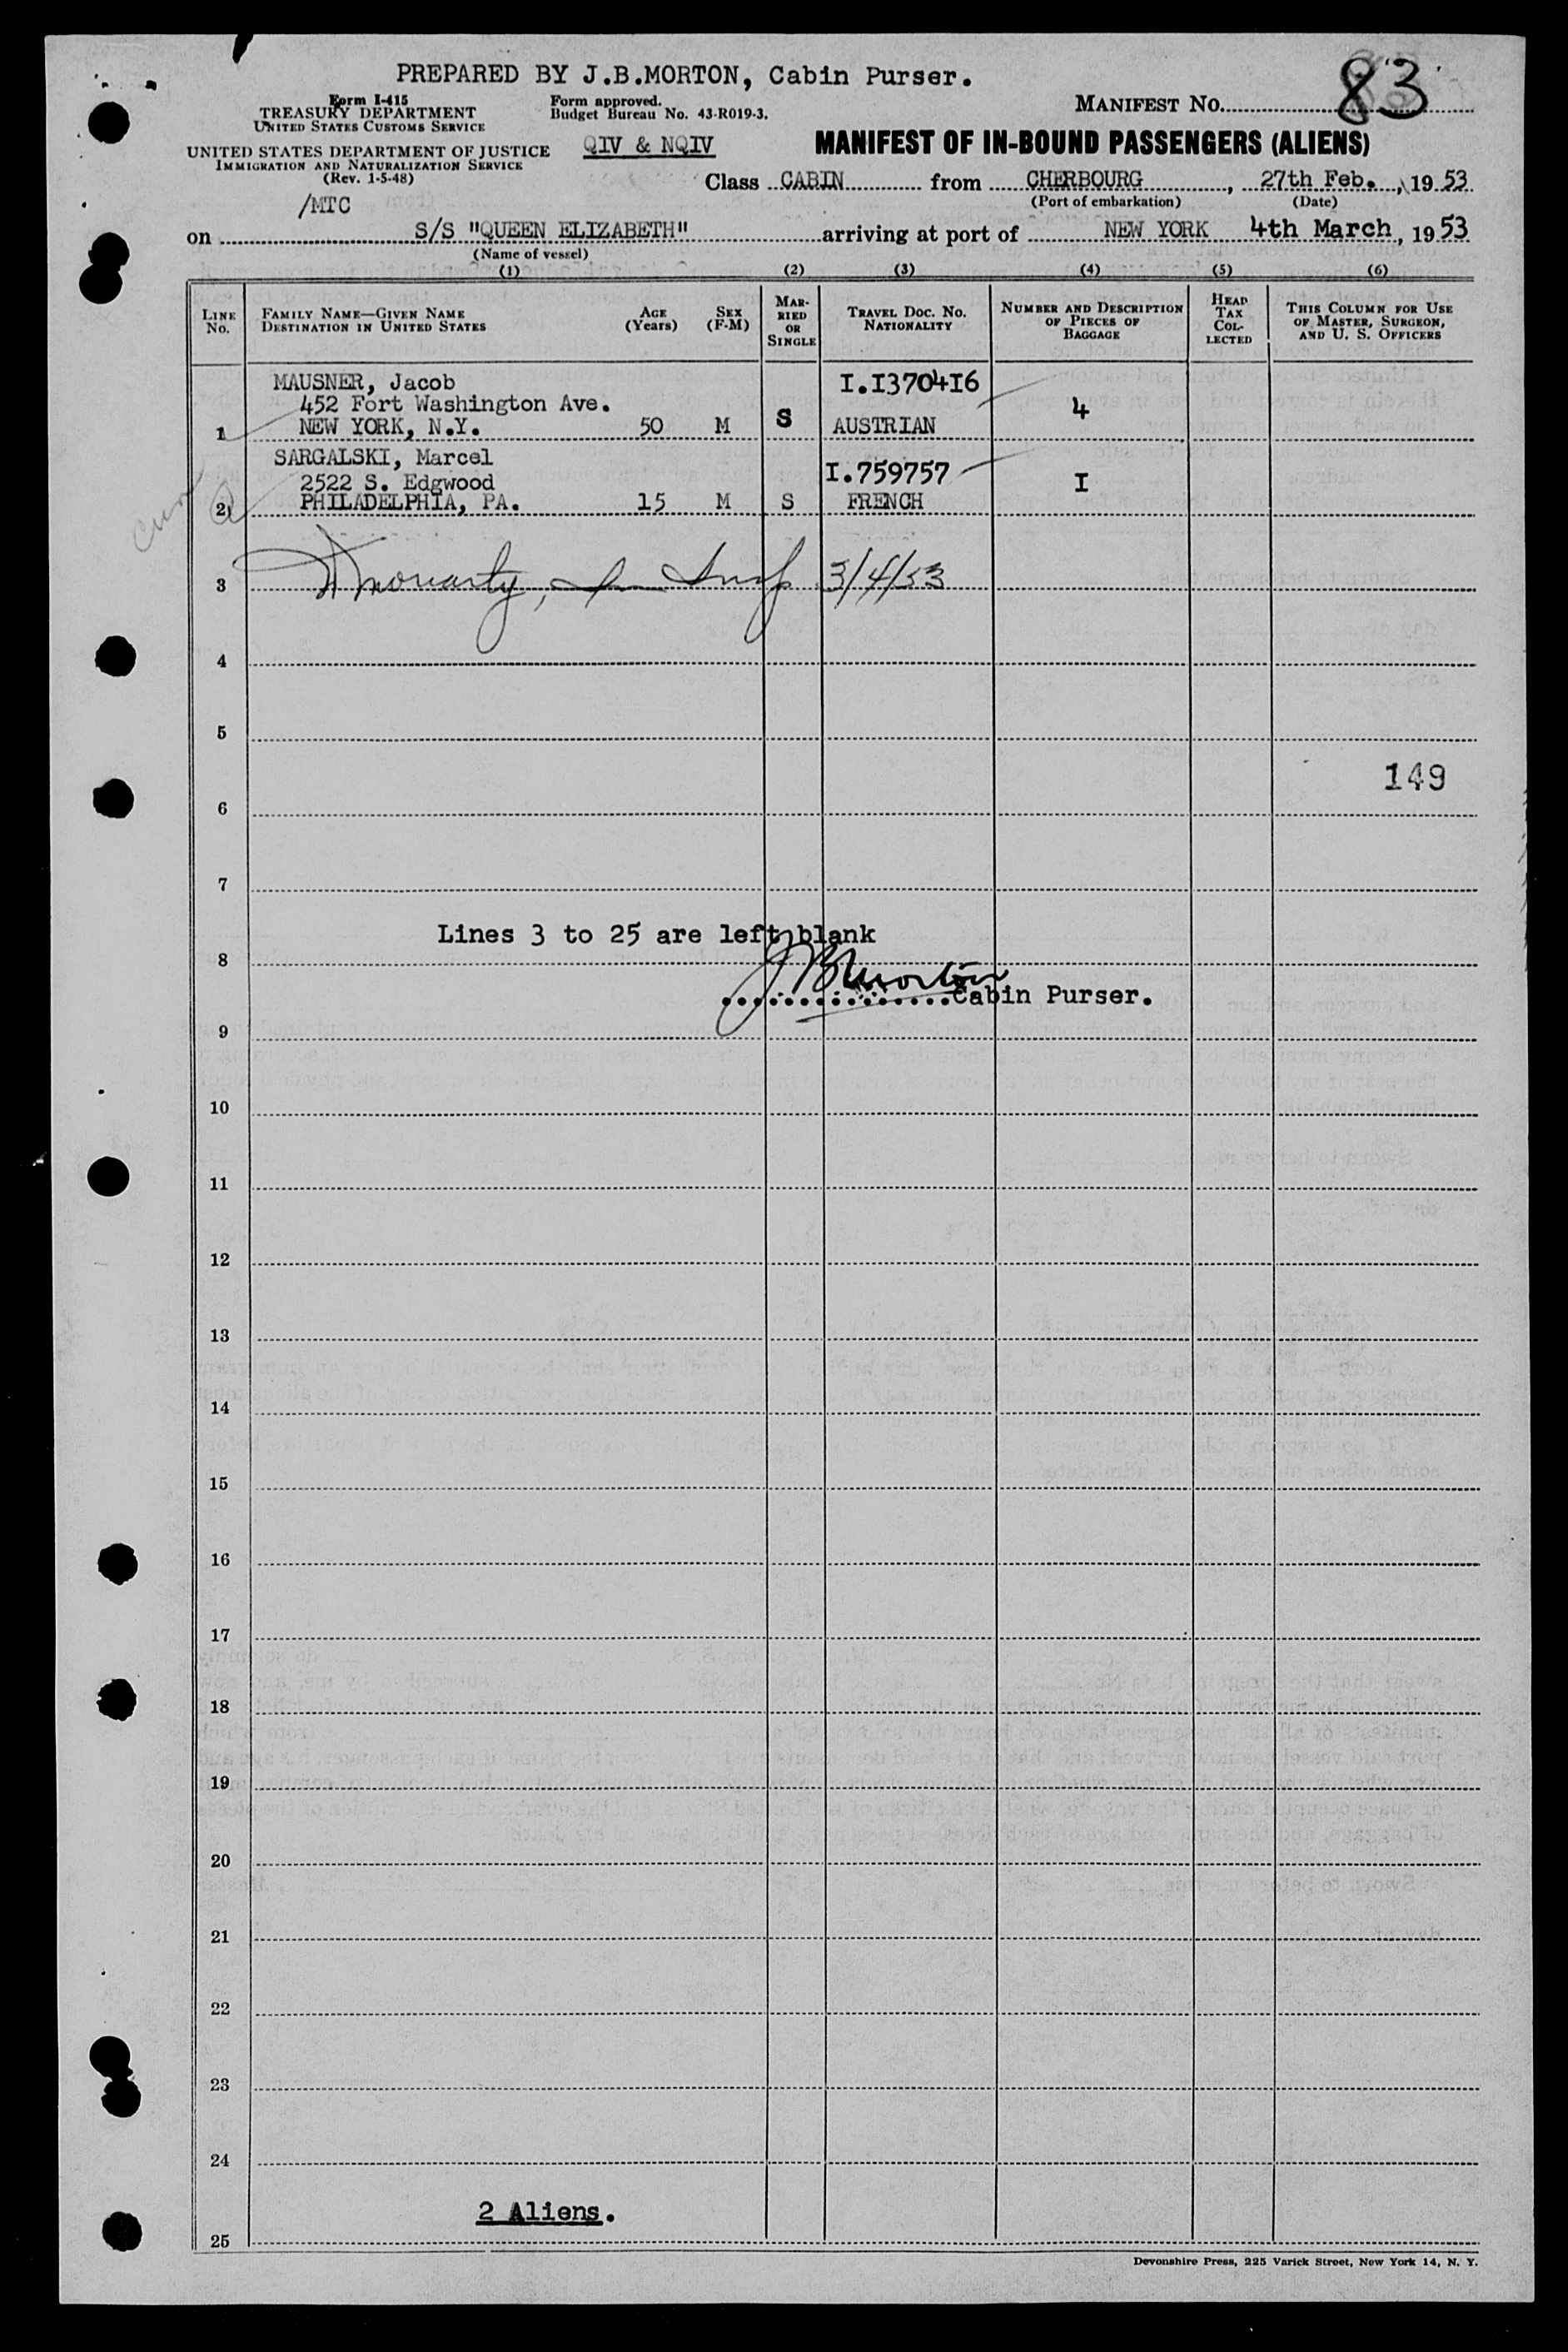 PREPARED BY J.B.MORTON, Cabin Purser.
Form I-415
TREASURY DEPARTMENT
UNITED STATES CUSTOMS SERVICE
Form approved.
Budget Bureau No. 43-R019-3.
MANIFEST NO. 83
UNITED STATES DEPARTMENT OF JUSTICE
IMMIGRATION AND NATURALIZATION SERVICE
(Rev. 1-5-48)
QIV & NQIV
MANIFEST OF IN-BOUND PASSENGERS (ALIENS)
/MTC
Class CABIN from CHERBOURG, 27th Feb., 19 53
(Port of embarkation) (Date)
on S/S "QUEEN ELIZABETH" arriving at port of NEW YORK 4th March, 19 53
(Name of vessel)
(1) (2) (3) (4) (5) (6)
LINE NO.
FAMILY NAME—GIVEN NAME
DESTINATION IN UNITED STATES
AGE (Years)
SEX (F-M)
MARRIED OR SINGLE
TRAVEL DOC. NO.
NATIONALITY
NUMBER AND DESCRIPTION OF PIECES OF BAGGAGE
HEAD TAX COLLECTED
THIS COLUMN FOR USE OF MASTER, SURGEON, AND U. S. OFFICERS
MAUSNER, Jacob I.I3704I6
452 Fort Washington Ave. 4
1 NEW YORK, N.Y. 50 M S AUSTRIAN
SARGALSKI, Marcel I.759757
2522 S. Edgwood I
2 PHILADELPHIA, PA. 15 M S FRENCH
3 Moriarty, Insp 3/4/53
4
5
149
6
7
Lines 3 to 25 are left blank
8
JB Morton
Cabin Purser.
9
10
11
12
13
14
15
16
17
18
19
20
21
22
23
24
2 Aliens.
25
Devonshire Press, 225 Varick Street, New York 14, N. Y.